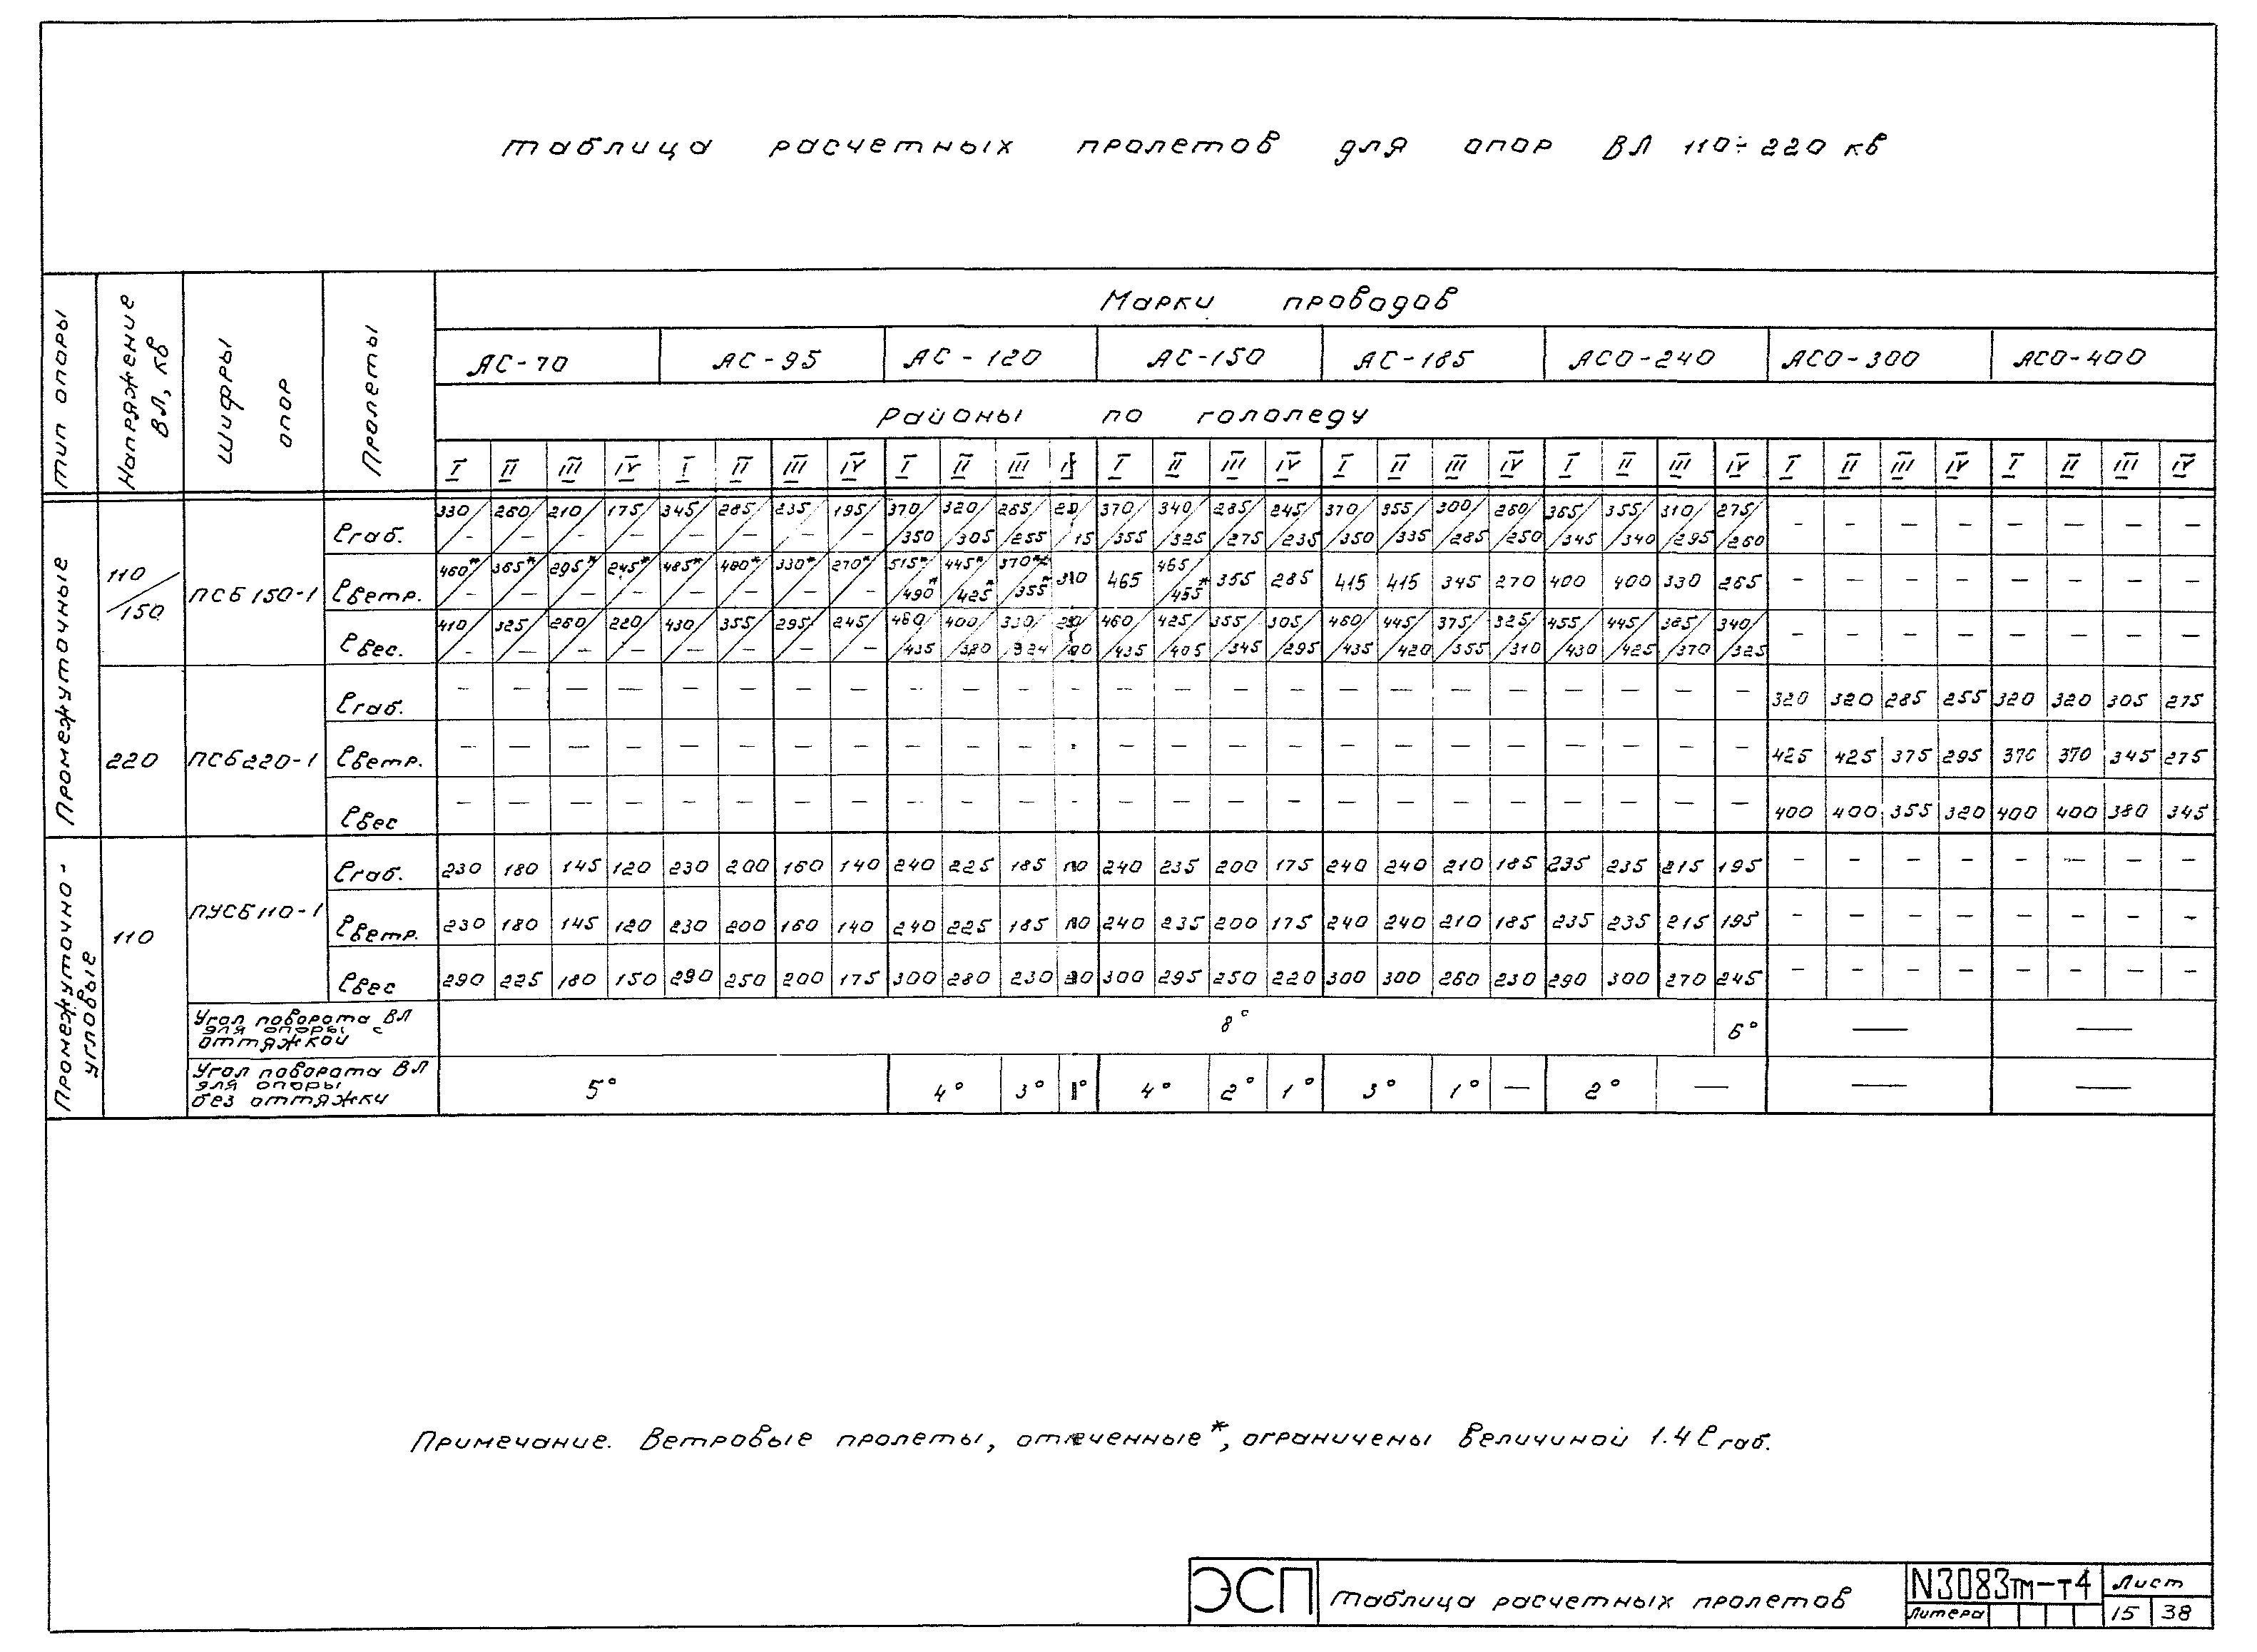 Таблица расчетных пролетов для опор ВЛ 110÷220 кв
Тип опоры
Напряжение ВЛ, кв
Шифры опор
Пролеты
Марки проводов
АС-70 АС-95 АС-120 АС-150 АС-185 АСО-240 АСО-300 АСО-400
Районы по гололеду
I II III IV I II III IV I II III I II III IV I II III IV I II III IV I II III IV I II III IV
Промежуточные
110/150
ПСБ150-1
ℓгаб. 330/- 260/- 210/- 175/- 345/- 285/- 235/- 195/- 370/350 320/305 265/255 370/355 340/325 285/275 245/235 370/350 355/335 300/285 260/250 365/345 355/340 310/295 275/260 - - - - - - - -
ℓветр. 460*/- 365*/- 295*/- 245*/- 485*/- 400*/- 330*/- 270*/- 515*/490* 445*/425* 370*/355* 310 465 465/455* 355 285 415 415 345 270 400 400 330 265 - - - - - - - -
ℓвес. 410/- 325/- 260/- 220/- 430/- 355/- 295/- 245/- 460/435 400/380 330/324 460/435 425/405 355/345 305/295 460/435 445/420 375/355 325/310 455/430 445/425 385/370 340/325 - - - - - - - -
220
ПСБ220-1
ℓгаб. - - - - - - - - - - - - - - - - - - - - - - - - 320 320 285 255 320 320 305 275
ℓветр. - - - - - - - - - - - - - - - - - - - - - - - - 425 425 375 295 370 370 345 275
ℓвес - - - - - - - - - - - - - - - - - - - - - - - - 400 400 355 320 400 400 380 345
Промежуточно-угловые
110
ПУСБ110-1
ℓгаб. 230 180 145 120 230 200 160 140 240 225 185 240 235 200 175 240 240 210 185 235 235 215 195 - - - - - - - -
ℓветр. 230 180 145 120 230 200 160 140 240 225 185 240 235 200 175 240 240 210 185 235 235 215 195 - - - - - - - -
ℓвес 290 225 180 150 290 250 200 175 300 280 230 300 295 250 220 300 300 260 230 290 300 270 245 - - - - - - - -
Угол поворота ВЛ для опоры с оттяжкой 8° 6° — —
Угол поворота ВЛ для опоры без оттяжки 5° 4° 3° 4° 2° 1° 3° 1° — 2° — — —
Примечание. Ветровые пролеты, отмеченные*, ограничены величиной 1.4 ℓгаб.
ЭСП
Таблица расчетных пролетов
N3083тм-т4
Лист
Литера
15 38